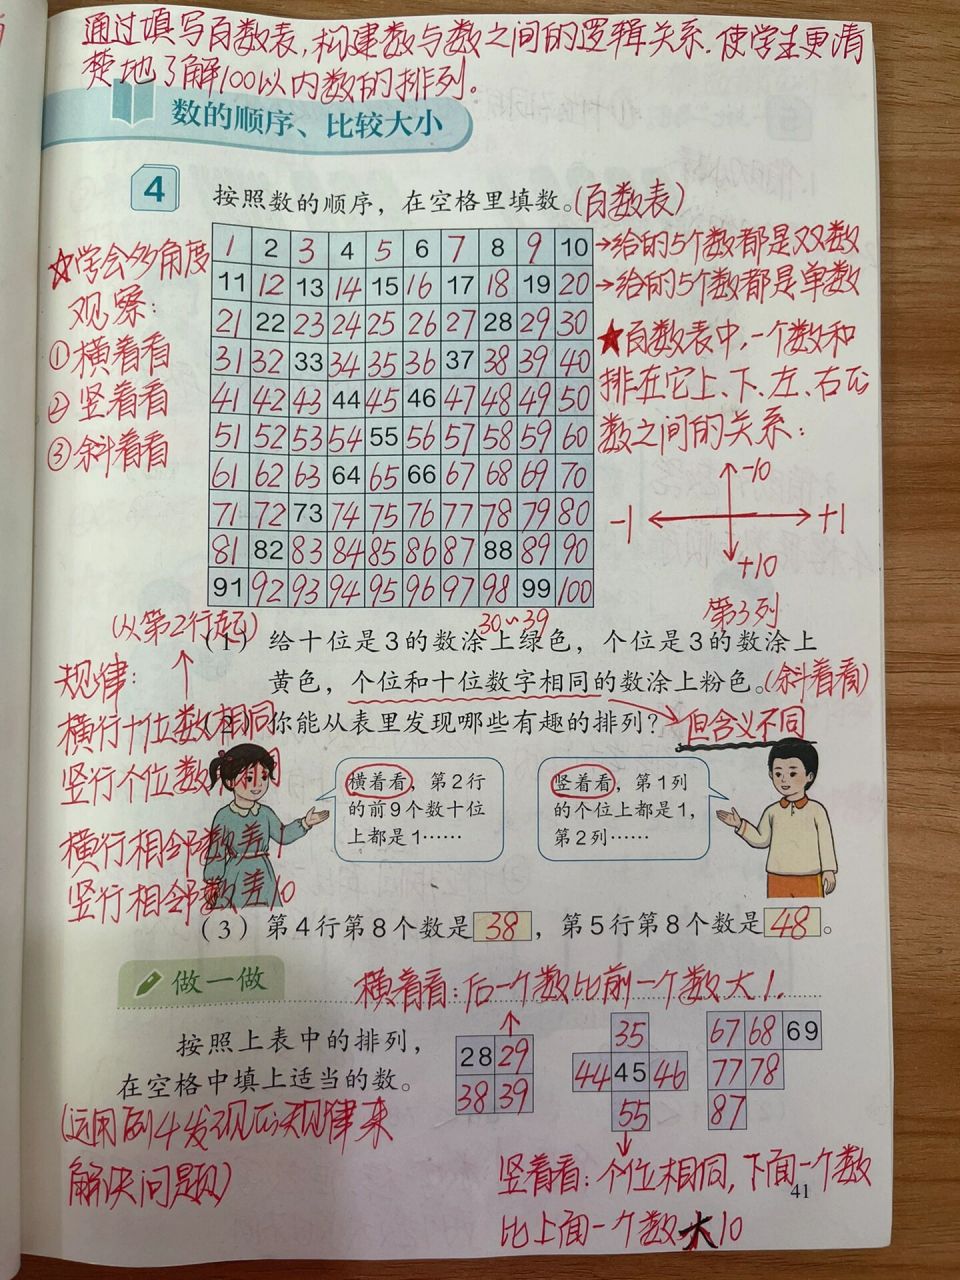 通过填写百数表，构建数与数之间的逻辑关系。使学生更清
楚地了解100以内数的排列。
数的顺序、比较大小
4
按照数的顺序，在空格里填数。(百数表)
☆学会多角度
观察：
①横着看
②竖着看
③斜着看
1 2 3 4 5 6 7 8 9 10
11 12 13 14 15 16 17 18 19 20
21 22 23 24 25 26 27 28 29 30
31 32 33 34 35 36 37 38 39 40
41 42 43 44 45 46 47 48 49 50
51 52 53 54 55 56 57 58 59 60
61 62 63 64 65 66 67 68 69 70
71 72 73 74 75 76 77 78 79 80
81 82 83 84 85 86 87 88 89 90
91 92 93 94 95 96 97 98 99 100
→给的5个数都是双数
→给的5个数都是单数
★百数表中，一个数和
排在它上、下、左、右的
数之间的关系：
-10
-1 +1
+10
(从第2行起)
30~39
第3列
(1) 给十位是3的数涂上绿色，个位是3的数涂上
黄色，个位和十位数字相同的数涂上粉色。(斜着看)
(2) 你能从表里发现哪些有趣的排列？
但含义不同
规律：
横行十位数相同
竖行个位数相同
横行相邻数差1
竖行相邻数差10
横着看，第2行
的前9个数十位
上都是1……
竖着看，第1列
的个位上都是1，
第2列……
(3) 第4行第8个数是38，第5行第8个数是48。
做一做
横着看：后一个数比前一个数大1.
按照上表中的排列，
在空格中填上适当的数。
(运用例4发现的规律来
解决问题)
28 29
38 39
35
44 45 46
55
67 68 69
77 78
87
竖着看：个位相同，下面一个数
比上面一个数大10
41